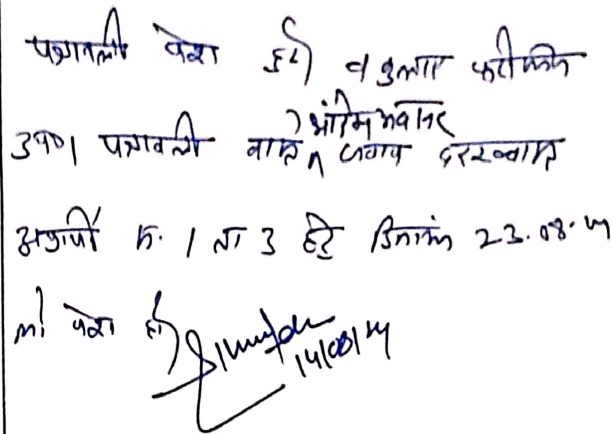 पत्रावली पेश हुई व वकुलाए फरीकेन
उप0। पत्रावली वास्ते अंतिम अवसर जवाब दरख्वास्त
अप्रार्थी क्र. 1 ता 3 हेतु दिनांक 23.08.
को पेश हो
14/08/